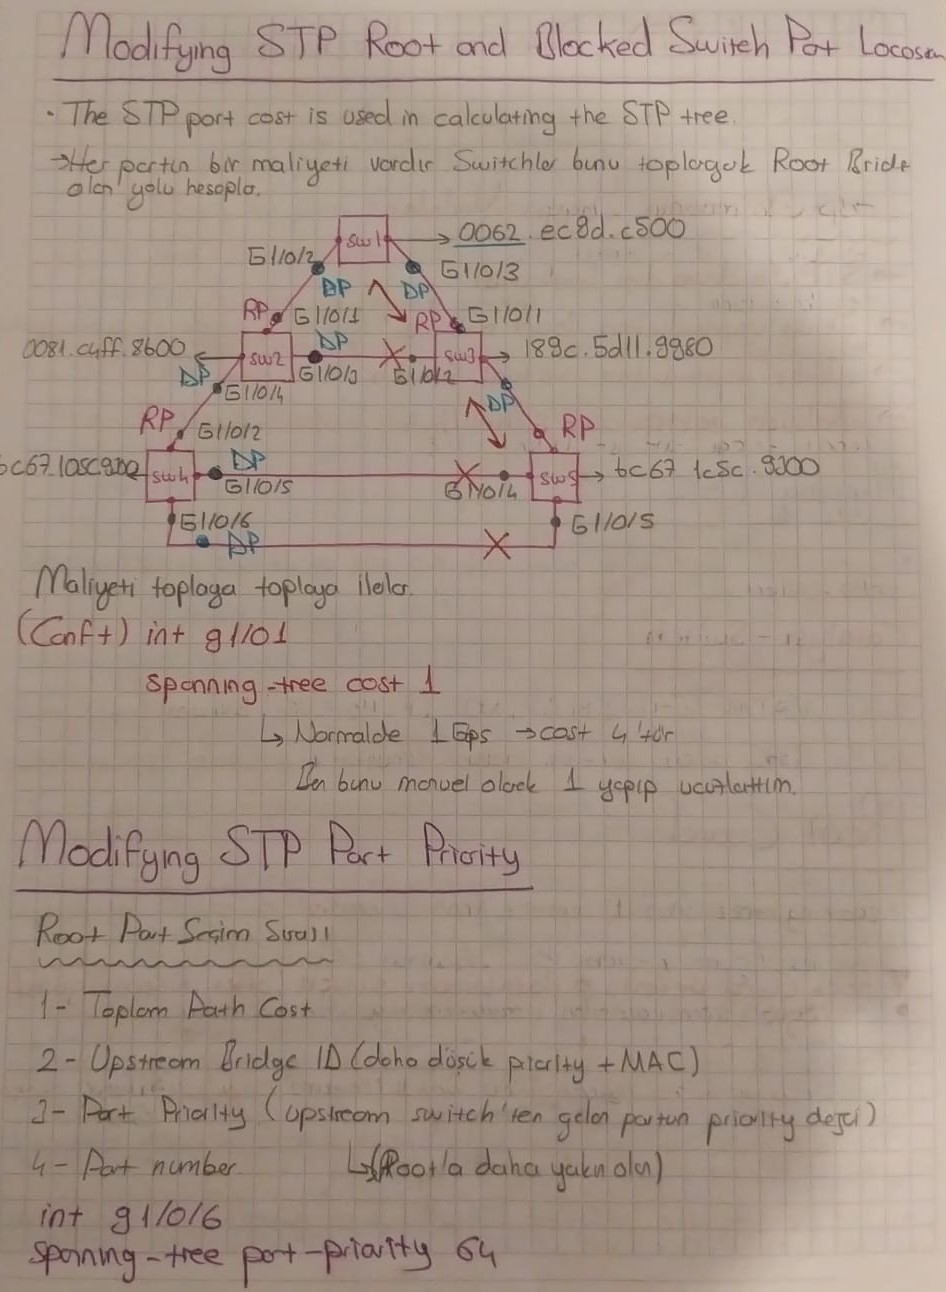 Modifying STP Root and Blocked Switch Port Locosan
· The STP port cost is used in calculating the STP tree.
→ Her portun bir maliyeti vardır Switchler bunu toplayarak Root Bride
olan yolu hesapla.
SW1 → 0062.ec9d.c500
G1/0/2 G1/0/3
DP DP
RP G1/0/1 RP G1/0/1
0081.c4ff.8600 SW2 DP SW3 → 189c.5d11.9980
G1/0/3 G1/0/2
DP G1/0/4 DP
RP G1/0/2 RP
SW4 DP SW5 → bc67.1c5c.9300
G1/0/5 G1/0/4
G1/0/6 G1/0/5
DP
Maliyeti toplaya toplaya ilerler.
(Conf t) int g1/01
spanning-tree cost 1
↳ Normalde 1 Gps → cost 4 'tür
Ben bunu manuel olarak 1 yapıp ucuzlattım.
Modifying STP Port Priority
Root Port Seçim Sırası
1- Toplam Path Cost
2- Upstream Bridge ID (daha düşük priority + MAC)
3- Port Priority (upstream switch'ten gelen portun priority değeri)
4- Port number ↳ (Root'a daha yakın olan)
int g1/0/6
spanning-tree port-priority 64